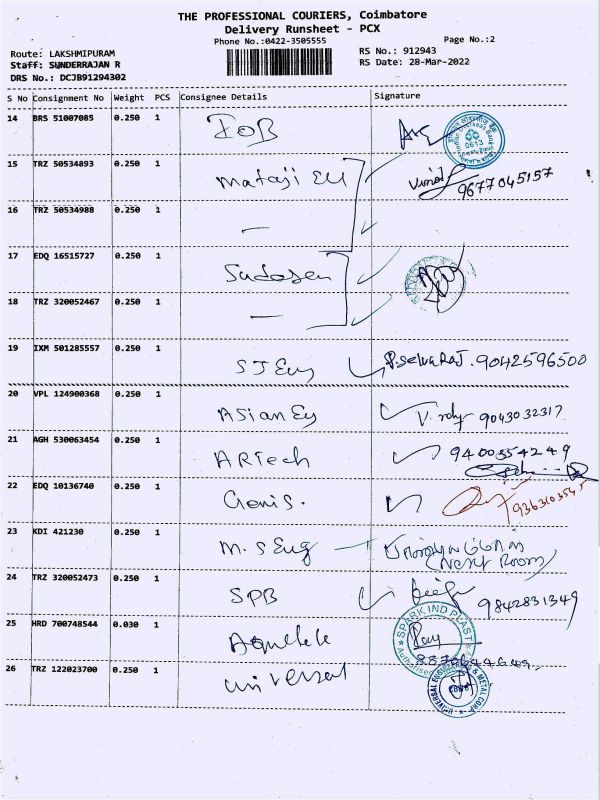 THE PROFESSIONAL COURIERS, Coimbatore
Delivery Runsheet - PCX
Phone No.:0422-3505555
Page No.:2
Route: LAKSHMIPURAM
RS No.: 912943
Staff: SUNDERRAJAN R
RS Date: 28-Mar-2022
DRS No.: DCJB91294302
S No Consignment No Weight PCS Consignee Details Signature
14 BRS 51007085 0.250 1 IOB
0613
15 TRZ 50534893 0.250 1 Mataji EU
9677045157
16 TRZ 50534988 0.250 1 —
17 EDQ 16515727 0.250 1 Sudosen
18 TRZ 320052467 0.250 1 —
19 IXM 501285557 0.250 1 STEng P.SelvaRaJ. 9042596500
20 VPL 124900368 0.250 1 ASian Eg 9043032317
21 AGH 530063454 0.250 1 ARTech 9400354249
22 EDQ 10136740 0.250 1
23 KDI 421230 0.250 1 M.S Eng
(Next Room)
24 TRZ 320052473 0.250 1 SPB 9842831349
25 HRD 700748544 0.030 1
SPARK IND PLAST
26 TRZ 122023700 0.250 1 universal
& METAL CORP